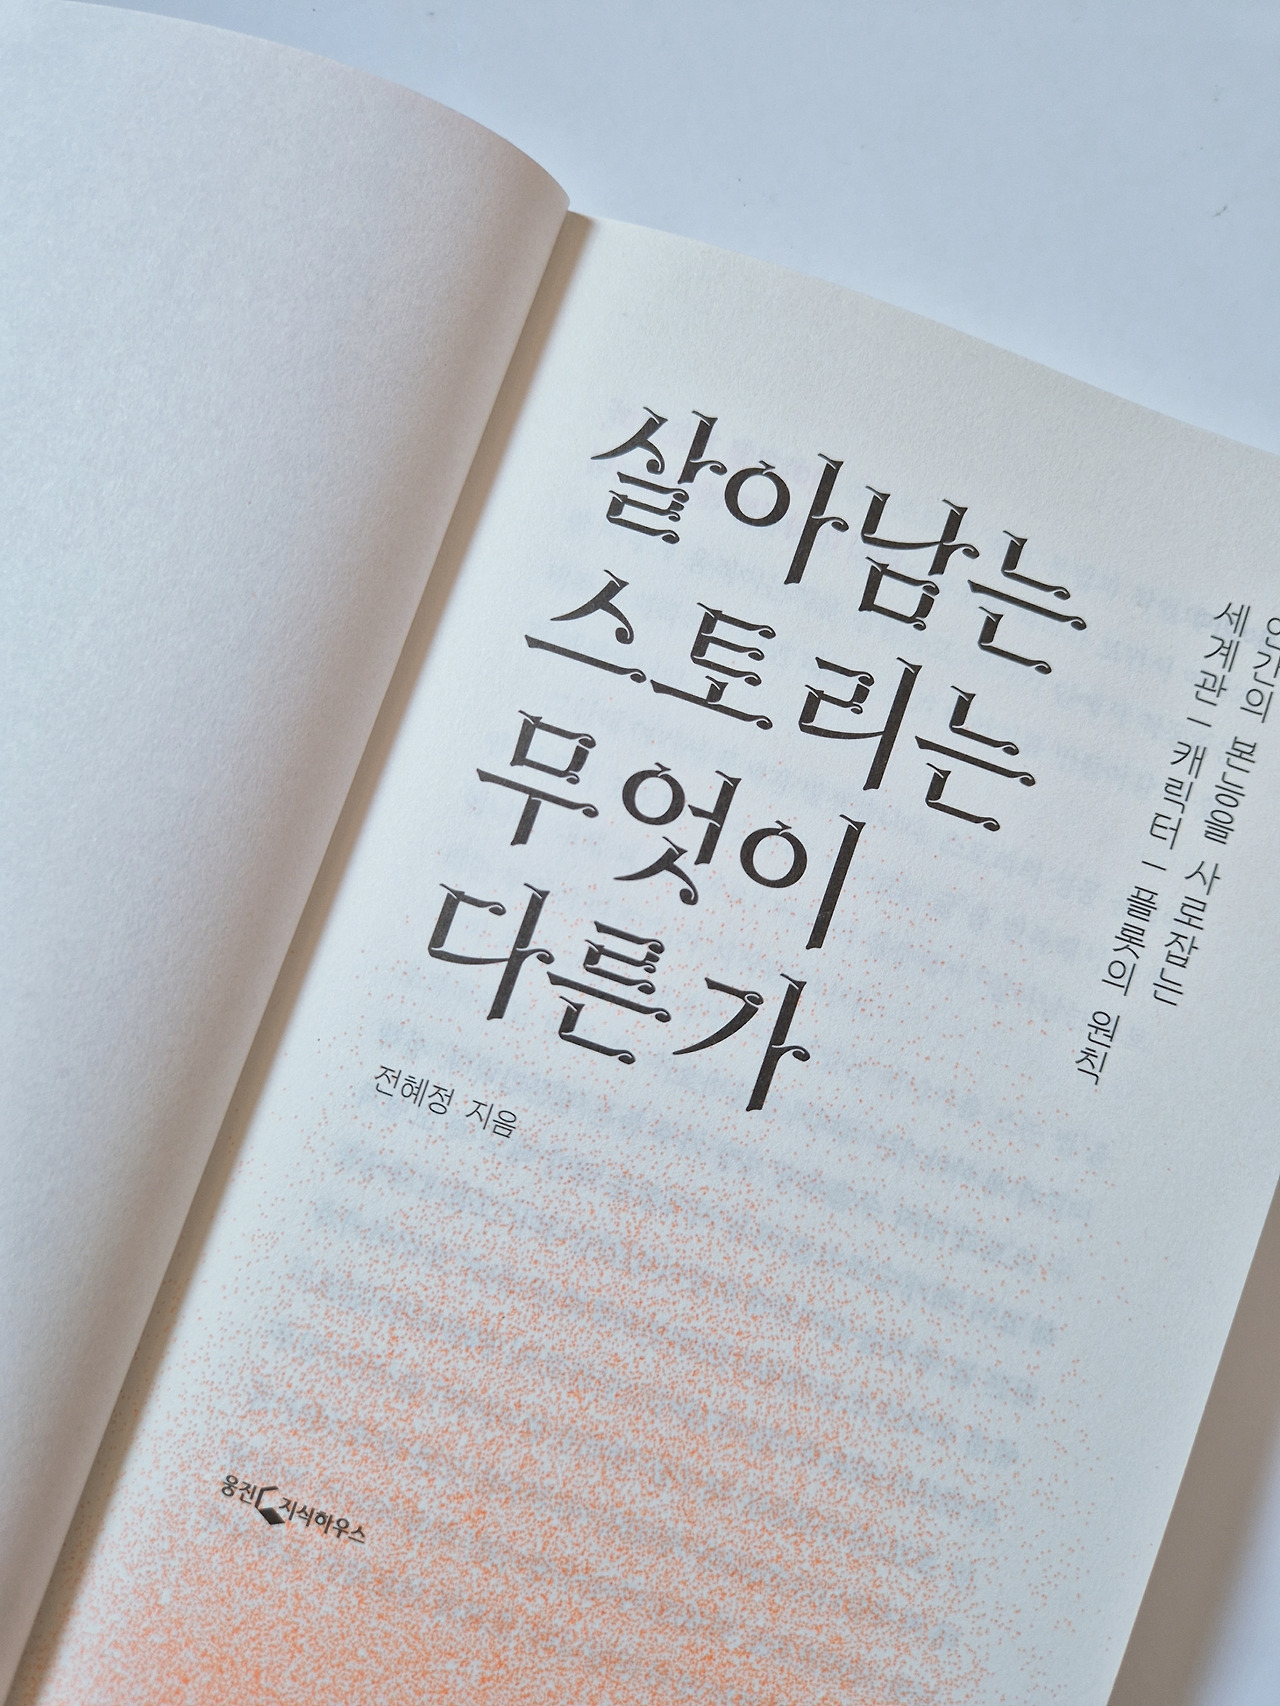 살아남는
스토리는
무엇이
다른가
전혜정 지음
인간의 본능을 사로잡는
세계관 | 캐릭터 | 플롯의 원칙
웅진 지식하우스